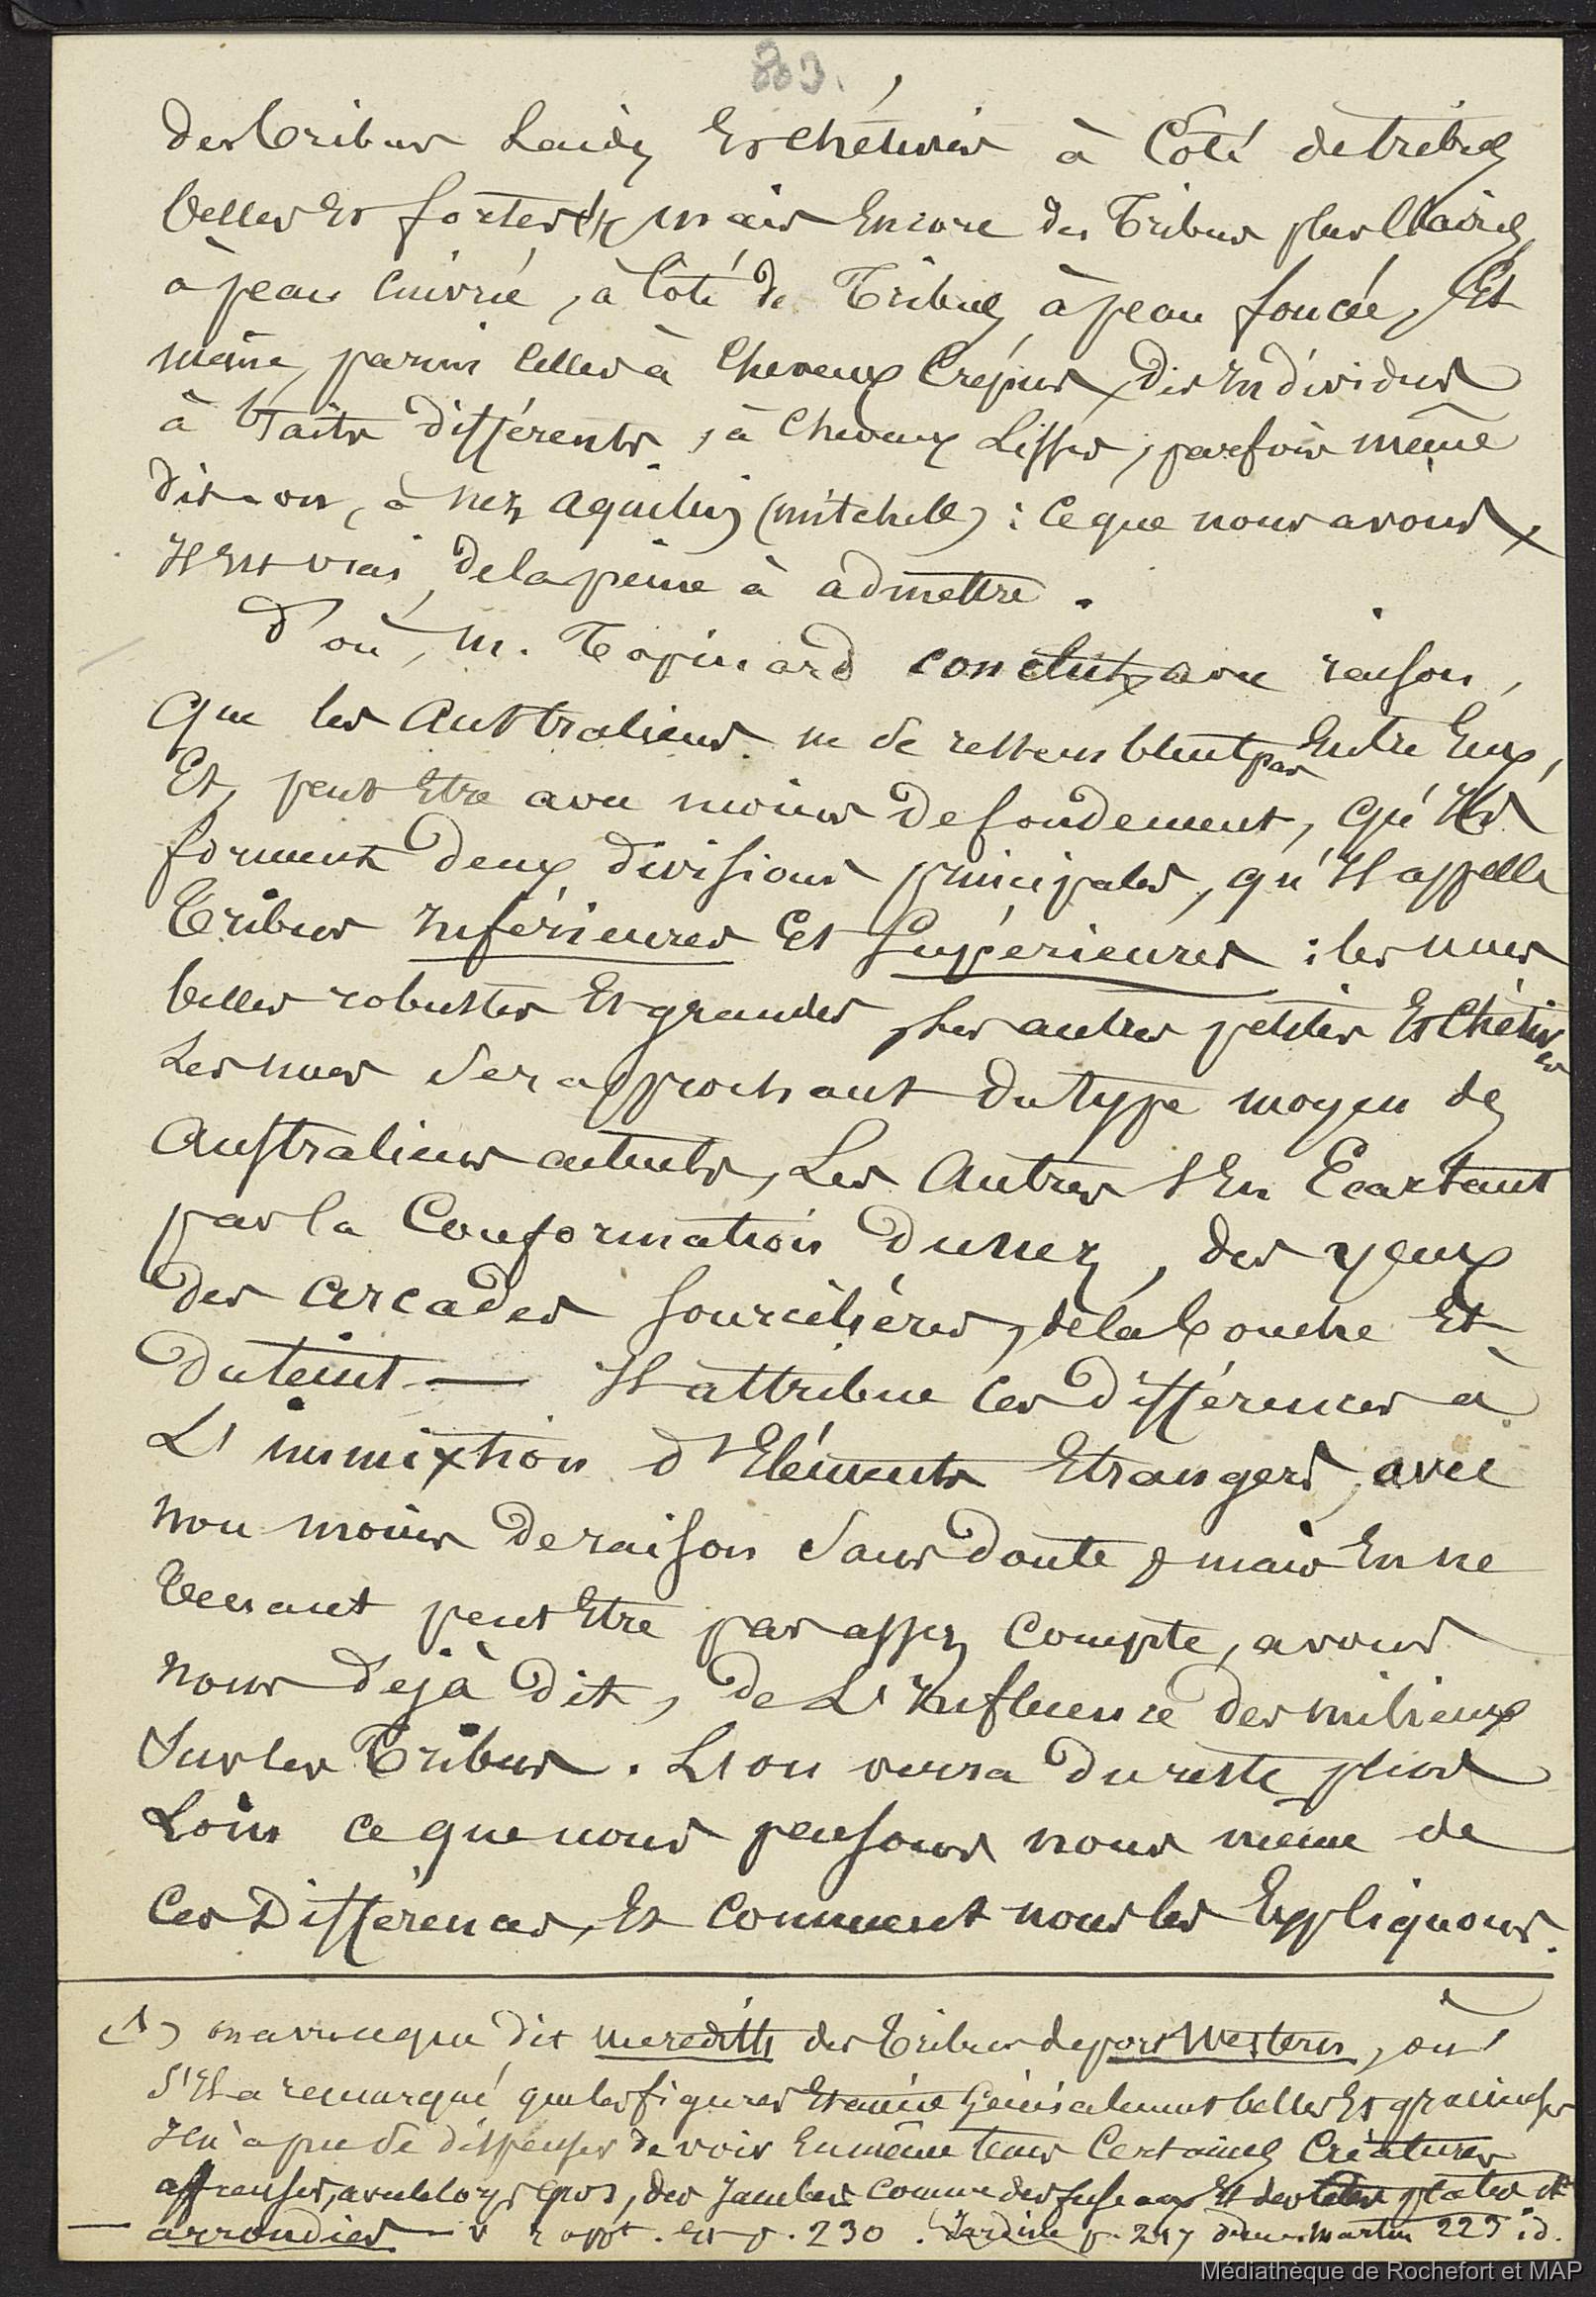 803.
des tribus laides et chétives à côté de tribus
belles et fortes (1) mais encore des tribus plus claires,
à peau cuivrée, à côté de tribus à peau foncée, et
même, parmi celles à cheveux crépus, des individus
à traits différents, à cheveux lisses, parfois même
dit-on, à nez aquilin (mitchell) : ce que nous avons,
il est vrai, de la peine à admettre.
D'où, M. Topinard conclut, avec raison,
que les Australiens ne se ressemblent pas entre eux,
et, peut être avec moins de fondement, qu'ils
forment deux divisions principales, qu'il appelle
tribus inférieures et supérieures : les unes
belles robustes et grandes, les autres petites et chétives
les unes se rapprochant du type moyen des
Australiens actuels, les autres s'en écartant
par la conformation du nez, des yeux
des arcades sourcilières, de la bouche et
du teint — Il attribue ces différences à
l'immixtion d'éléments étrangers, avec
non moins de raison sans doute, mais en ne
tenant peut être pas assez compte, avons
nous déjà dit, de l'influence des milieux
sur les tribus. L'on verra du reste plus
loin ce que nous pensons nous même de
ces différences, et comment nous les expliquons.
(1) dit meredith des tribus de port Western, où
s'il a remarqué que les figures généralement belles et gracieuses
il n'a pu se dispenser de voir en même tems certaines créatures
affreuses, avec gros, des jambes comme des fuseaux et des têtes plates et
— arrondies — v rappt. p. 230. Jardine p. 247 martin 223 id.
Médiathèque de Rochefort et MAP